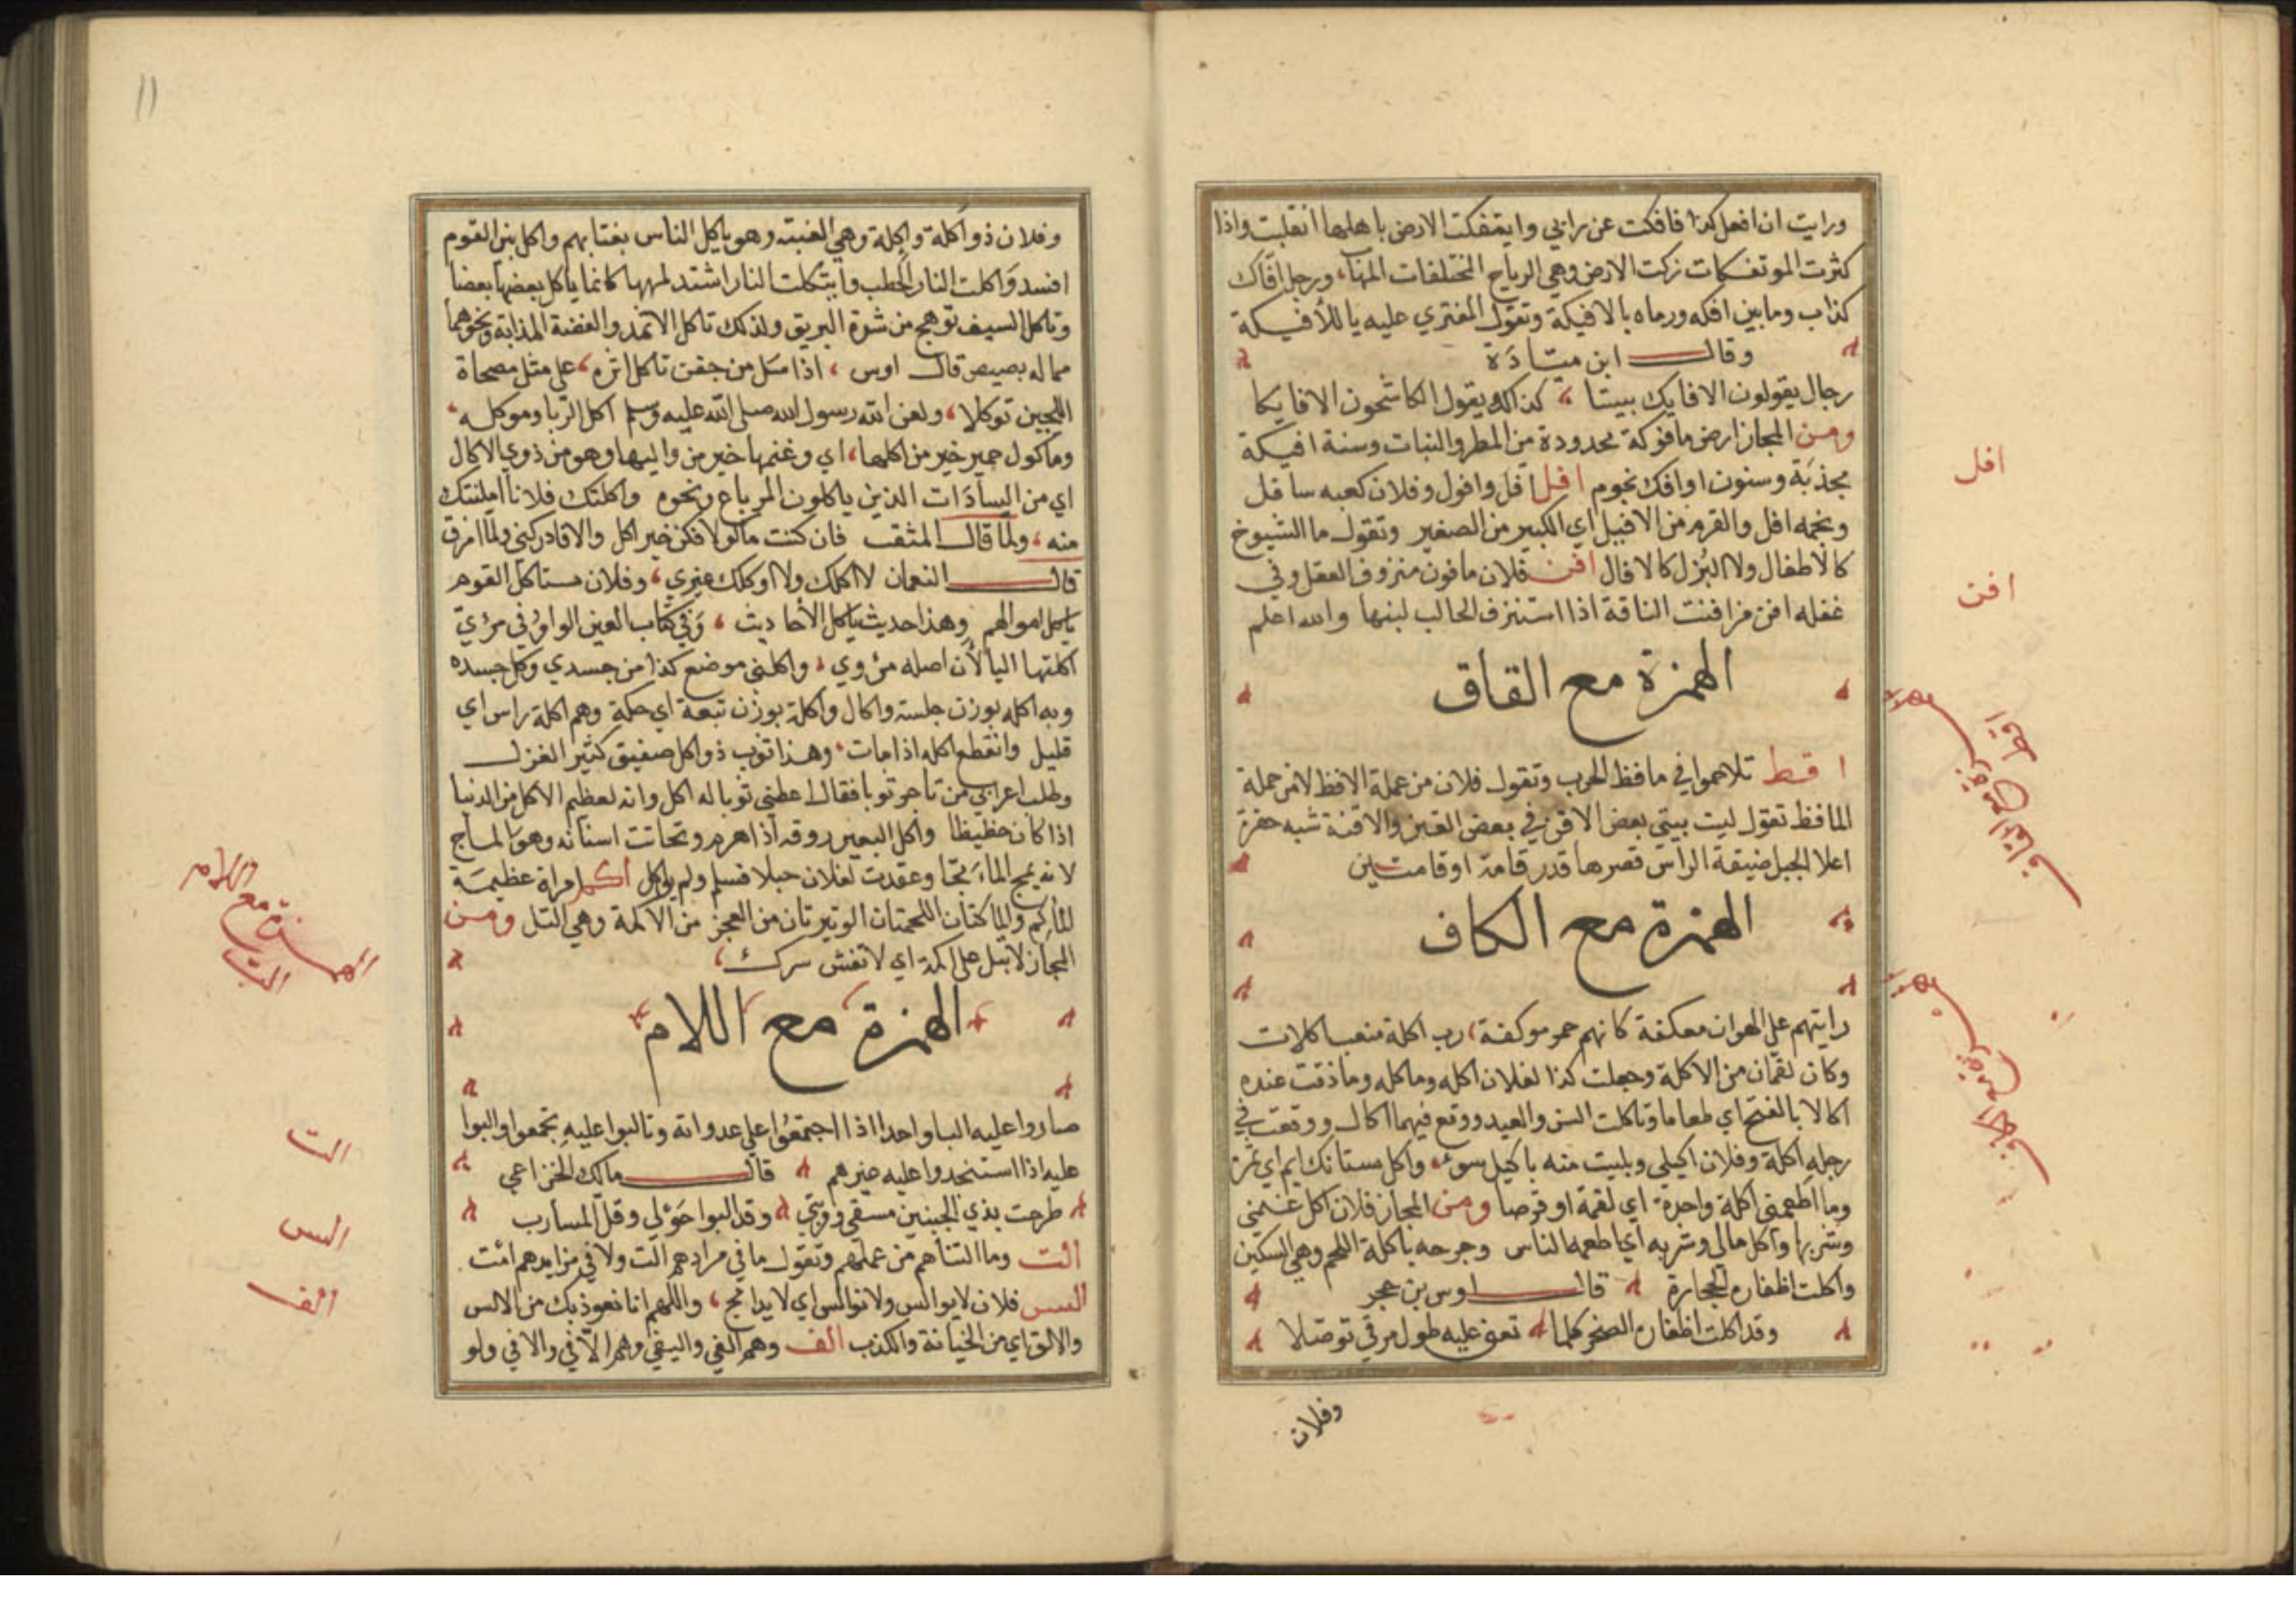 ورايت ان افعل كذا فافكت عن رابي وايتفكت الارض باهلها انقلبت واذا
كثرت الموتفكات زكت الارض وهي الرياح المختلفات المهاب ورجل افاك
كذاب وما بين افكه ورماه بالافيكة وتقول المفتري عليه يا للأفيكة
وقال ابن ميادة
رجال يقولون الافايك بيننا كذلك يقول الكاشحون الافايكا
ومن المجاز ارض مافوكة محدودة من المطر والنبات وسنة افيكة
مجذبة وسنون اوافك نجوم افل افل وافول وفلان كعبه سافل
ونجمه افل والقرم من الافيل اي الكبير من الصغير وتقول ما الشيوخ
كالاطفال ولا البزل كالافال افن فلان مافون منزوف العقل وفي
عقله افن من افنت الناقة اذا استنزف الحالب لبنها والله اعلم
الهمزة مع القاف
اقط تلاحموا في ماقط الحرب وتقول فلان من عملة الاقط لا من حملة
الماقط تقول ليت بيتي بعض الاقن في بعض القنن والاقنة شبه حفرة
اعلا الجبل ضيقة الراس قعرها قدر قامة او قامتين
الهمزة مع الكاف
رايتهم علي الهوان معكفة كانهم حمر موكفة رب اكلة منعت اكلات
وكان لقمان من الاكلة وجعلت كذا لفلان اكله وماكله وما ذقت عنده
اكالا بالفتح اي طعاما وتاكلت السن والعيد ووقع فيهما اكال ووقعت في
رجله اكلة وفلان اكيلي وبليت منه باكيل سوء واكل بستانك ايم اي ثمرة
وما اطعمني اكلة واحدة اي لقمة او قرصا ومن المجاز فلان اكل غنمي
وشربها واكل مالي وشربه اي اطعمه الناس وجرحه باكلة اللحم وهي السكين
واكلت اظفاره الحجارة قال اوس بن حجر
وقد اكلت اظفاره الصخر كلما تعني عليه طول مرقي توصلا
وفلان
افل
افن
وفلان ذو أكلة واكلة وهي الغيبة وهو ياكل الناس يغتابهم واكل بين القوم
افسد واكلت النار الحطب وايتكلت النار اشتد لهبها كانما ياكل بعضها بعضا
وتاكل السيف توهج من شدة البريق ولذلك تاكل الاثمد والفضة المذابة ونحوهما
مما له بصيص قال اوس اذا سل من جفن تاكل اثره علي مثل مصحاة
اللجين توكلا ولعن الله رسول الله صلي الله عليه وسلم اكل الربا وموكله
وماكول حمير خير من اكلها اي وغنمها خير من واليها وهو من ذوي الاكال
اي من السادات الذين ياكلون المرباع ونحوه واكلتك فلانا امكنتك
منه ولما قال المثقب فان كنت ماكولا فكن خير اكل والا فادركني ولما امزق
قال النعمان لا اكلك ولا اوكلك غيري وفلان مستاكل القوم
ياكل اموالهم وهذا حديث ياكل الأحاديث وفي كتاب العين الواو في مرئي
اكلتها اليا لأن اصله مرئوي واكلني موضع كذا من جسدي وكل جسده
وبه اكله بوزن جلسة واكال واكلة بوزن تبعة اي حكة وهم اكلة راس اي
قليل وانقطع اكله اذا مات وهذا ثوب ذو اكل صفيق كثير الغزل
وطلب اعرابي من تاجر ثوبا فقال اعطني ثوبا له اكل وانه لعظيم الاكل من الدنيا
اذا كان حظيظا واكل البعير روقه اذا هرم وتحاتت اسنانه وهو الماج
لانه يمج الماء مجا وعقدت لفلان حبلا فسلم ولم يوكل أكم امراة عظيمة
المأكم والماكمتان اللحمتان الوثيرتان من العجز من الاكمة وهي التل ومن
المجاز لا تبل علي اكمة اي لا تفش سرك
الهمزة مع اللام
صاروا عليه البا واحدا اذا اجتمعوا علي عدواته وتالبوا عليه تجمعوا والبوا
عليه اذا استنجدوا عليه غيرهم قال مالك الخزاعي
طرحت بذي الجنبين مسقي وقربتي وقد البوا حولي وقل المسارب
الت وما التناهم من عملهم وتقول ما في مرادهم الت ولا في مزايدهم امت
الس فلان لا يوالس ولا نوالس اي لا يدامج واللهم انا نعوذ بك من الالس
والالق اي من الخيانة والكذب الف وهم الفي واليفي وهم الافي والافي ولو
الهمزة مع اللام
الب
الت
الس
الف
11